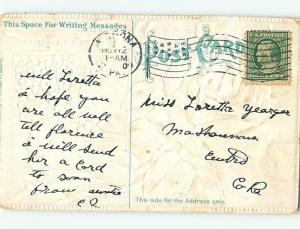 This Space For Writing Messages
POST CARD
ALTOONA
NOV 12
1 AM
PA.
U.S. POSTAGE
will Loretta
a hope you
are all well
tell florence
a will send
her a Card
to soon
from auntie
Miss Loretta Yeager
Co Pa
This side for the Address only.